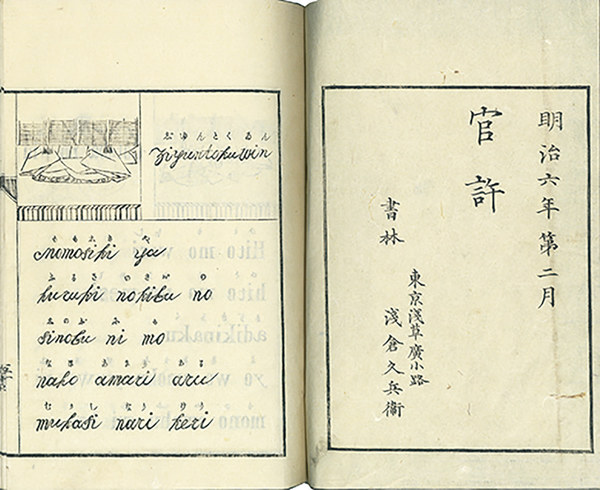 じゆんとくゐん
Ziyuntokuwin
ももしき や
Momosiki ya
ふるき のきば の
huruki nokiba no
しのぶ に も
sinobu ni mo
なほ あまり ある
naho amari aru
むかし なり けり
mukasi nari keri
明治六年第二月
官許
書林
東京淺草廣小路
淺倉久兵衛